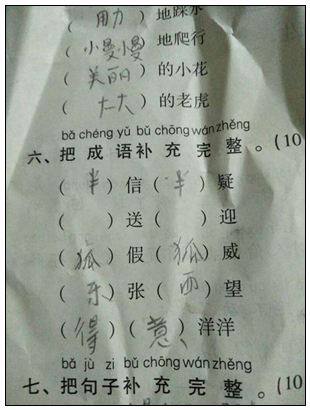 (用力)地踩水
(小曼小曼)地爬行
(美丽)的小花
(大大)的老虎
bǎ chéng yǔ bǔ chōng wán zhěng
六、把成语补充完整。(10
(半)信(半)疑
( )送( )迎
(狐)假(狐)威
(东)张(西)望
(得)(意)洋洋
bǎ jù zi bǔ chōng wán zhěng
七、把句子补充完整。(10